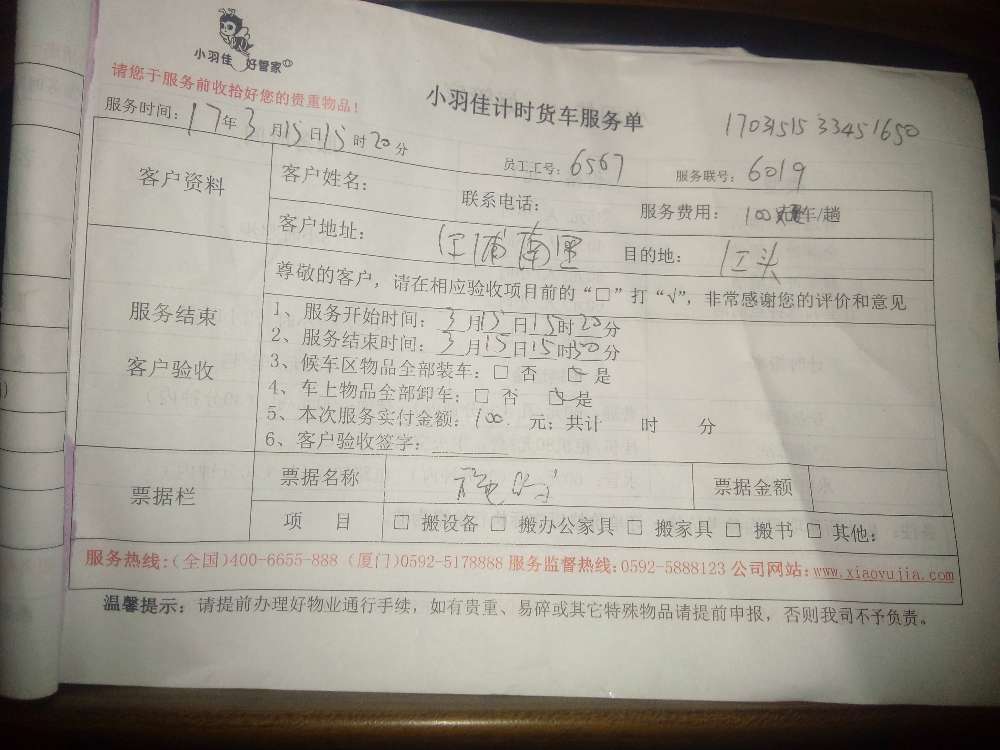 小羽佳 好管家
请您于服务前收拾好您的贵重物品!
小羽佳计时货车服务单
17031515 33451650
服务时间: 17年3月15日15时20分
员工工号: 6567 服务联号: 6019
客户资料
客户姓名: 联系电话: 服务费用: 100 车/趟
客户地址: 江浦南里 目的地: 江头
服务结束
客户验收
尊敬的客户,请在相应验收项目前的“□”打“√”,非常感谢您的评价和意见
1、服务开始时间: 3月15日15时20分
2、服务结束时间: 3月15日15时50分
3、候车区物品全部装车: □ 否 □ 是
4、车上物品全部卸车: □ 否 □ 是
5、本次服务实付金额: 100. 元; 共计 时 分
6、客户验收签字:
票据栏
票据名称 票据金额
项 目 □ 搬设备 □ 搬办公家具 □ 搬家具 □ 搬书 □ 其他:
服务热线:(全国)400-6655-888 (厦门)0592-5178888 服务监督热线:0592-5888123 公司网站:www.xiaoyujia.com
温馨提示: 请提前办理好物业通行手续,如有贵重、易碎或其它特殊物品请提前申报,否则我司不予负责。